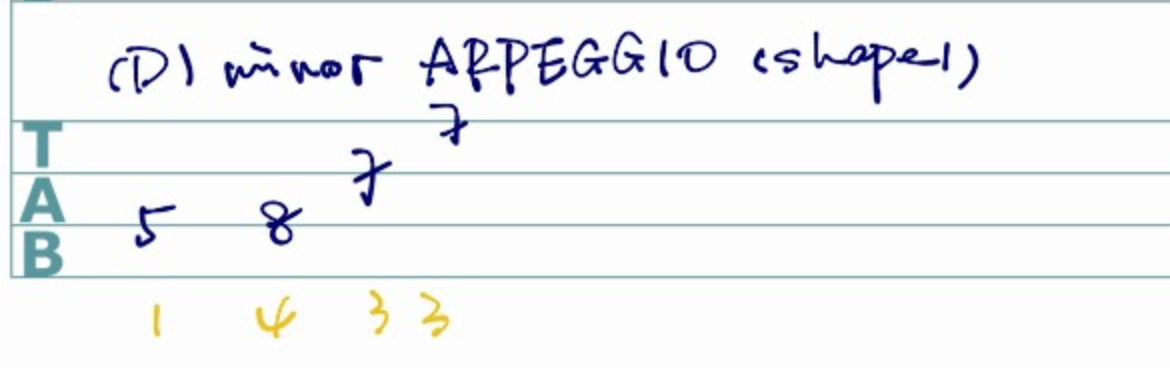 (D) minor ARPEGGIO (shape1)
T
7
7
A
5 8
B
1 4 3 3